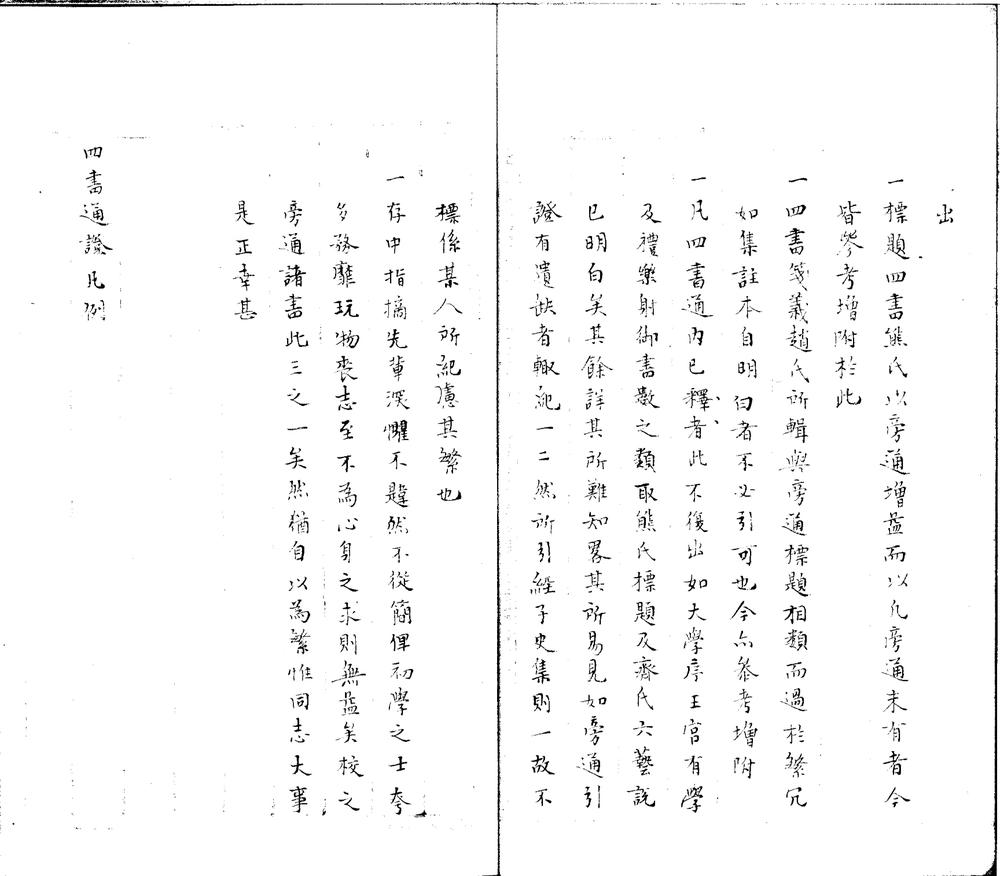 出
一標題四書熊氏以旁通增益而以凡旁通未有者今
皆叅考增附於此
一四書箋義趙氏所輯與旁通標題相類而過於繁冗
如集註本自明白者不必引可也今亦叅考增附
一凡四書通內已釋者此不復出如大學序王宮有學
及禮樂射御書數之類取熊氏標題及齊氏六藝說
已明白矣其餘詳其所難知畧其所易見如旁通引
證有潰缺者輙紀一二然所引經子史集則一故不
標係某人所紀慮其繁也
一存中指摘先輩深懼不韙然不從簡俾初學之士夸
多務靡玩物喪志至不為心身之求則無益矣校之
旁通諸書此三之一矣然猶自以為繁惟同志大事
是正幸甚
四書通證凡例